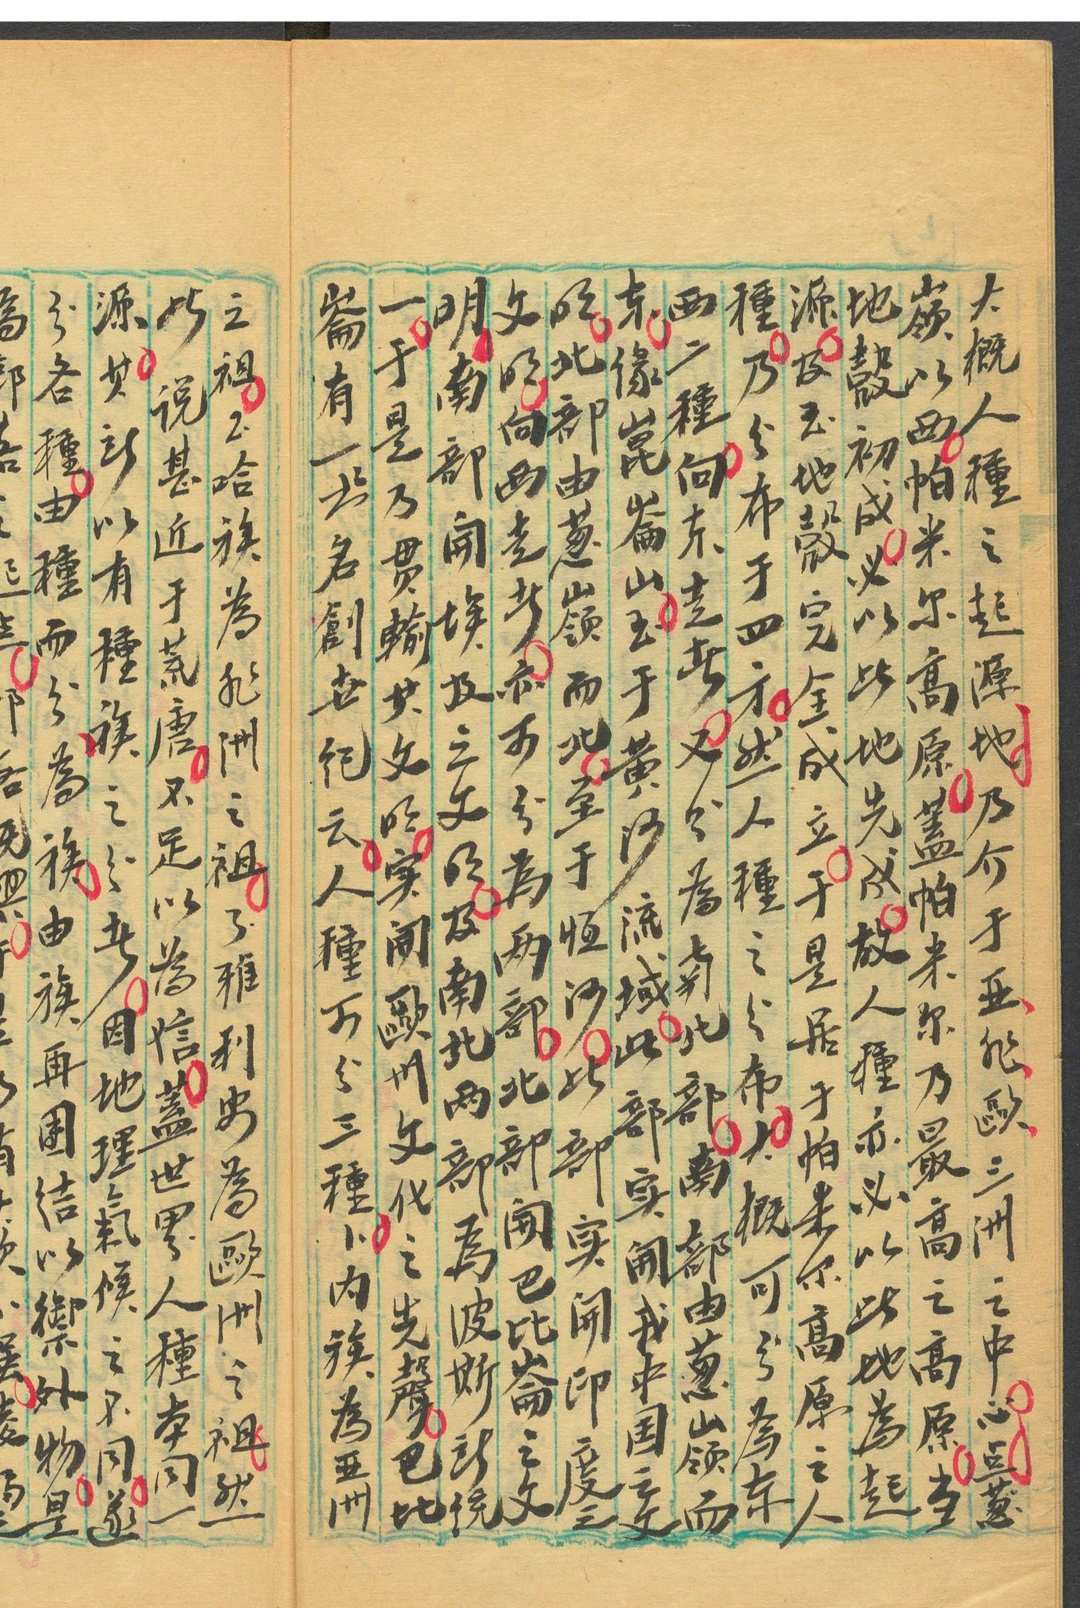 大概人種之起源地乃介于亚非歐三洲之中心点葱
嶺以西帕米尔高原蓋帕米尔乃最高之高原当
地殼初成必以此地先成故人種亦必以此地為起
源及至地殼完全成立于是居于帕米尔高原之人
種乃分布于四方然人種之分布大概可分為东
西二種向东走者又分為南北部南部由葱山嶺而
东缘崑崙山至于黄河流域此部实開我中国之文
明北部由葱嶺而北至于恒河此部实開印度之
文明向西走者亦可分為两部北部開巴比崙之文
明南部開埃及之文明及南北两部為波斯所統
一于是乃貫輸其文明实開歐州文化之先聲巴比
崙有一书名創世纪云人種可分三種 内族為亚洲
之祖 哈族為非洲之祖 雅利安為歐洲之祖然
此说甚近于荒唐不足以為信蓋世界人種本同一
源其所以有種族之分者因地理氣候之不同遂
分各種由種而分為族由族再團结以禦外物是